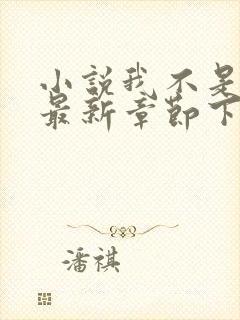 小说我不是
最新章节下
潘祺